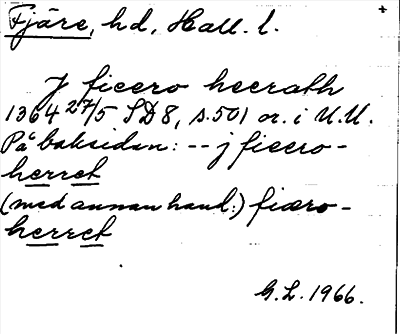 Fjäre, hd, Hall. l. +
J ficero heerath
1364 27/5 SD 8, s. 501 or. i U.U.
På baksidan: -- j ficero-
herret
(med annan hand:) fiæro-
herret
G.L. 1966.